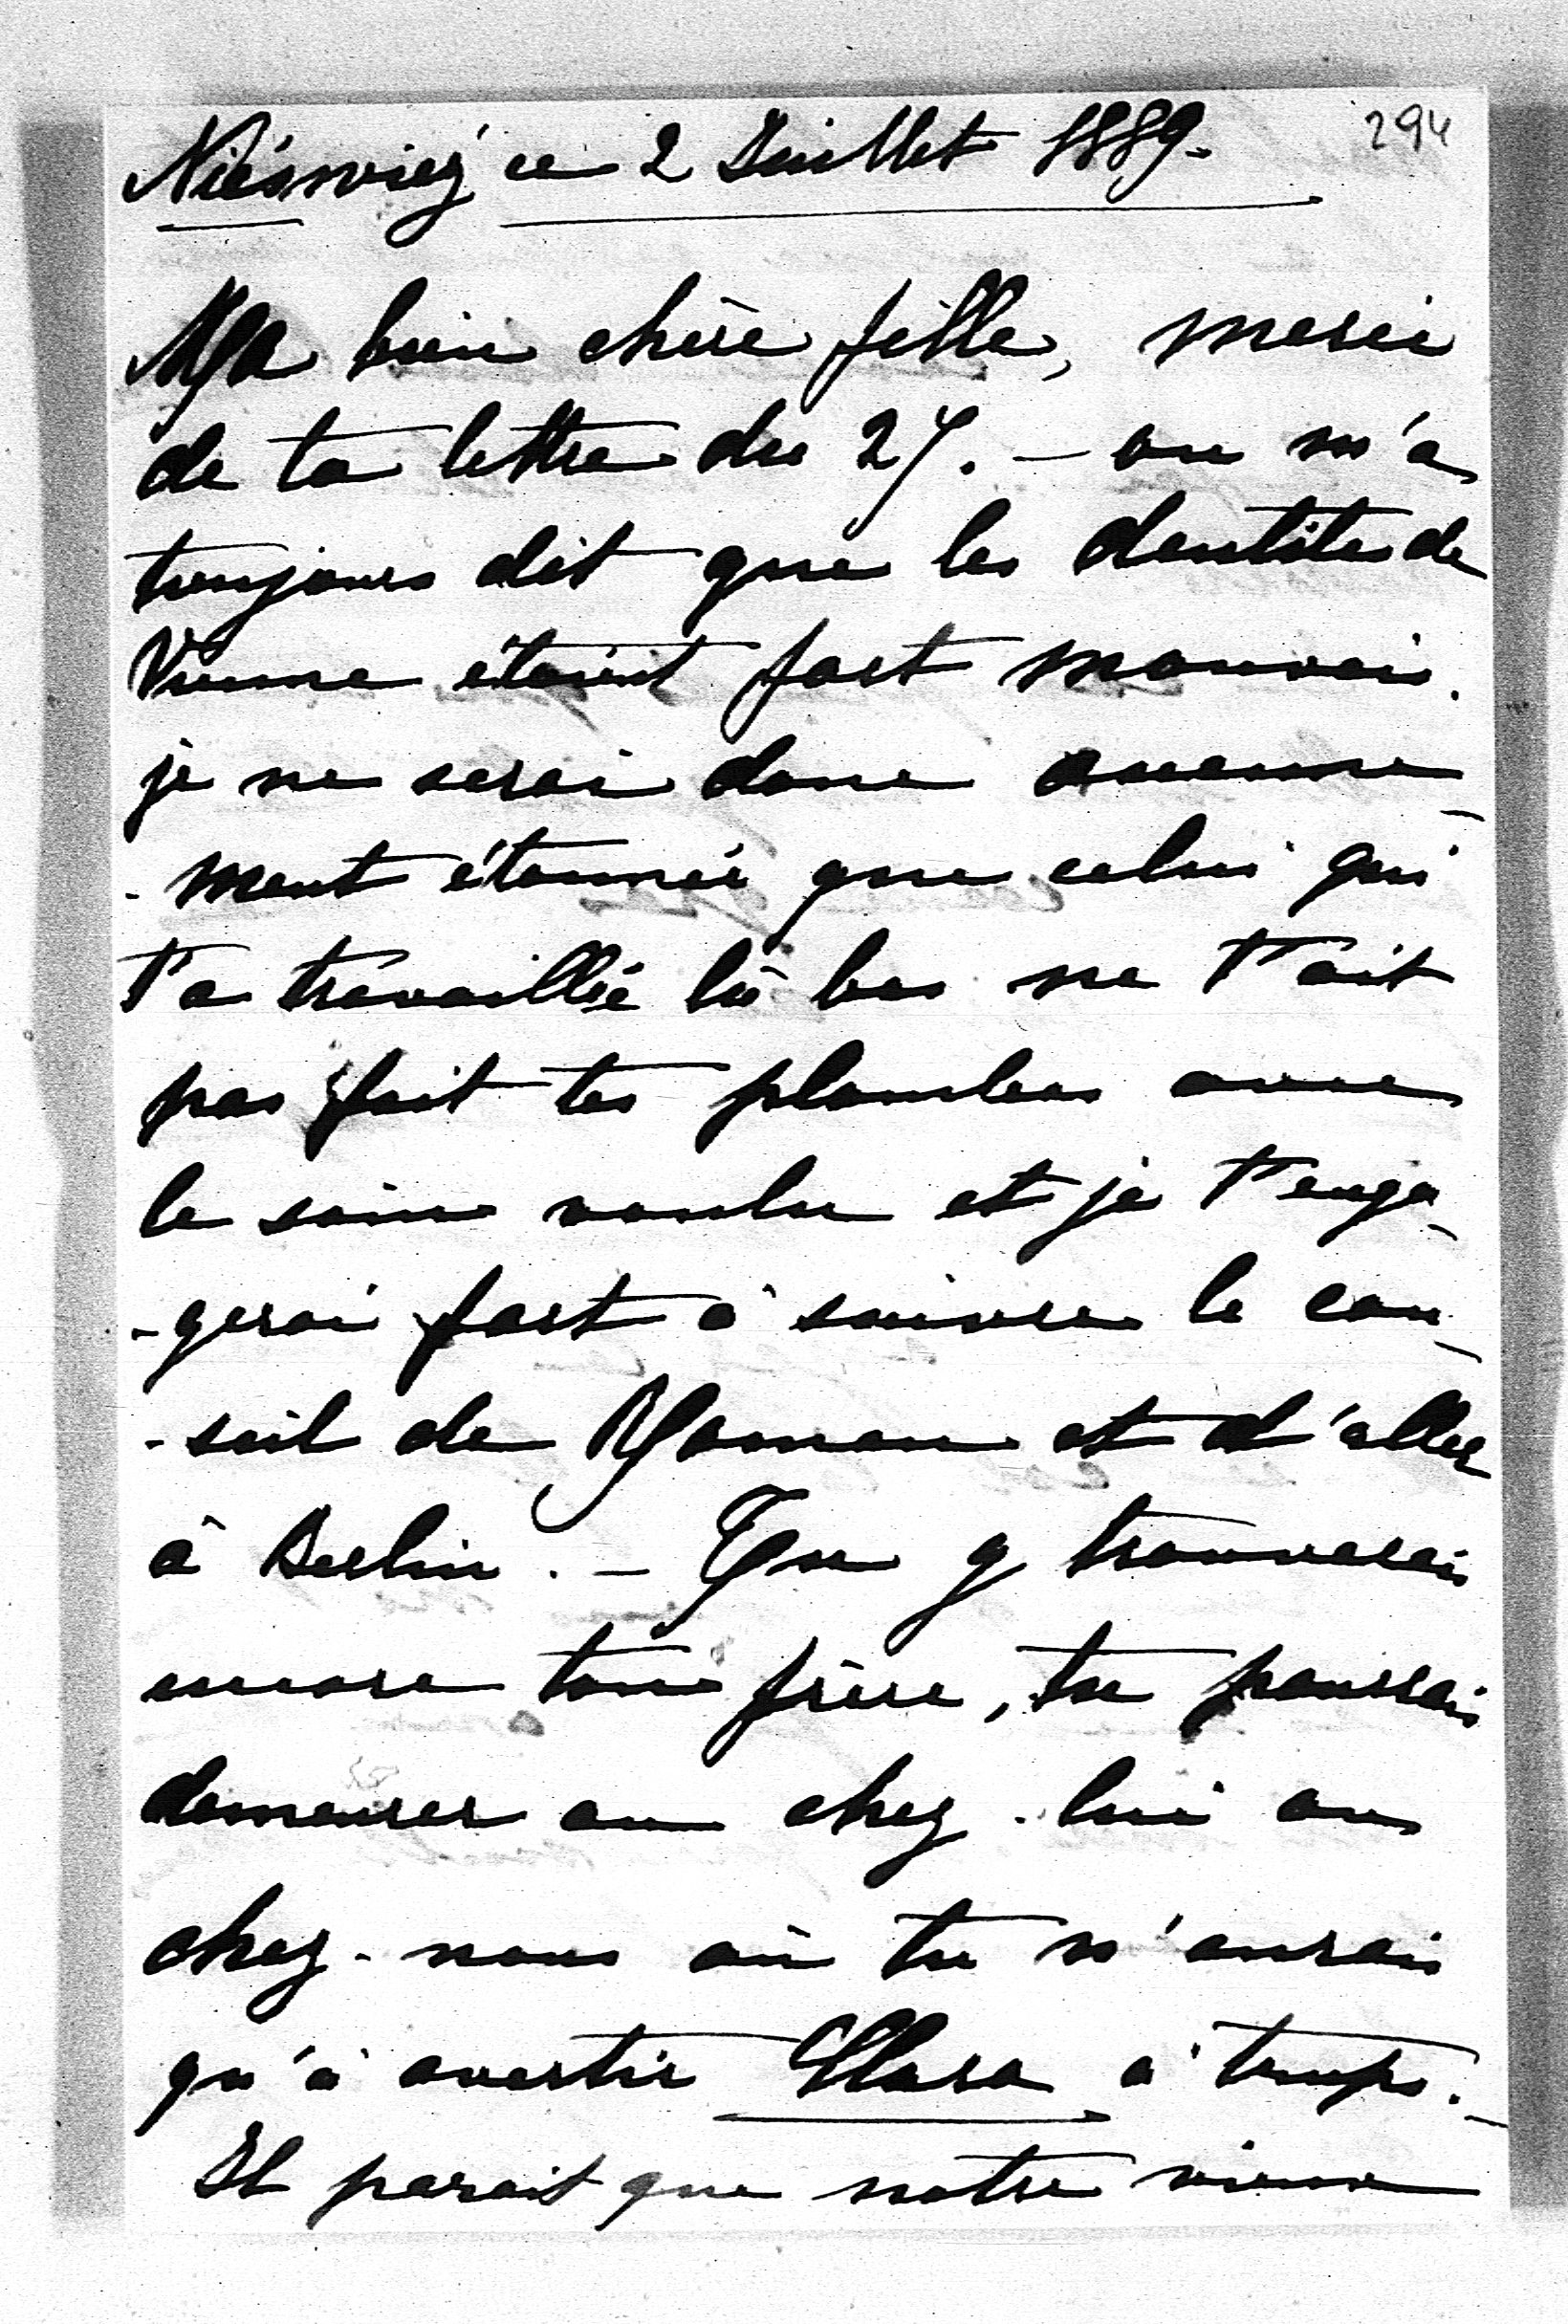 294
Nieświeź ce 2 Juillet 1889.
Ma bien chère fille, merci
de ta lettre du 27. – on m'a
toujours dit que les dentistes de
Vienne étaient fort mauvais.
je ne serai donc aucune-
-ment étonnée que celui qui
t'a travaillée là bas ne t'ait
pas fait tes plombes avec
le soin voulu et je t'enga-
-gerai fort à suivre le con-
-seil de Maman et d'aller
à Berlin. – Tu y trouverais
encore ton frère, tu pourrais
demeurer ou chez-lui ou
chez-nous où tu n'aurais
qu'à avertir Clara à temps. –
Il parait que notre vieux